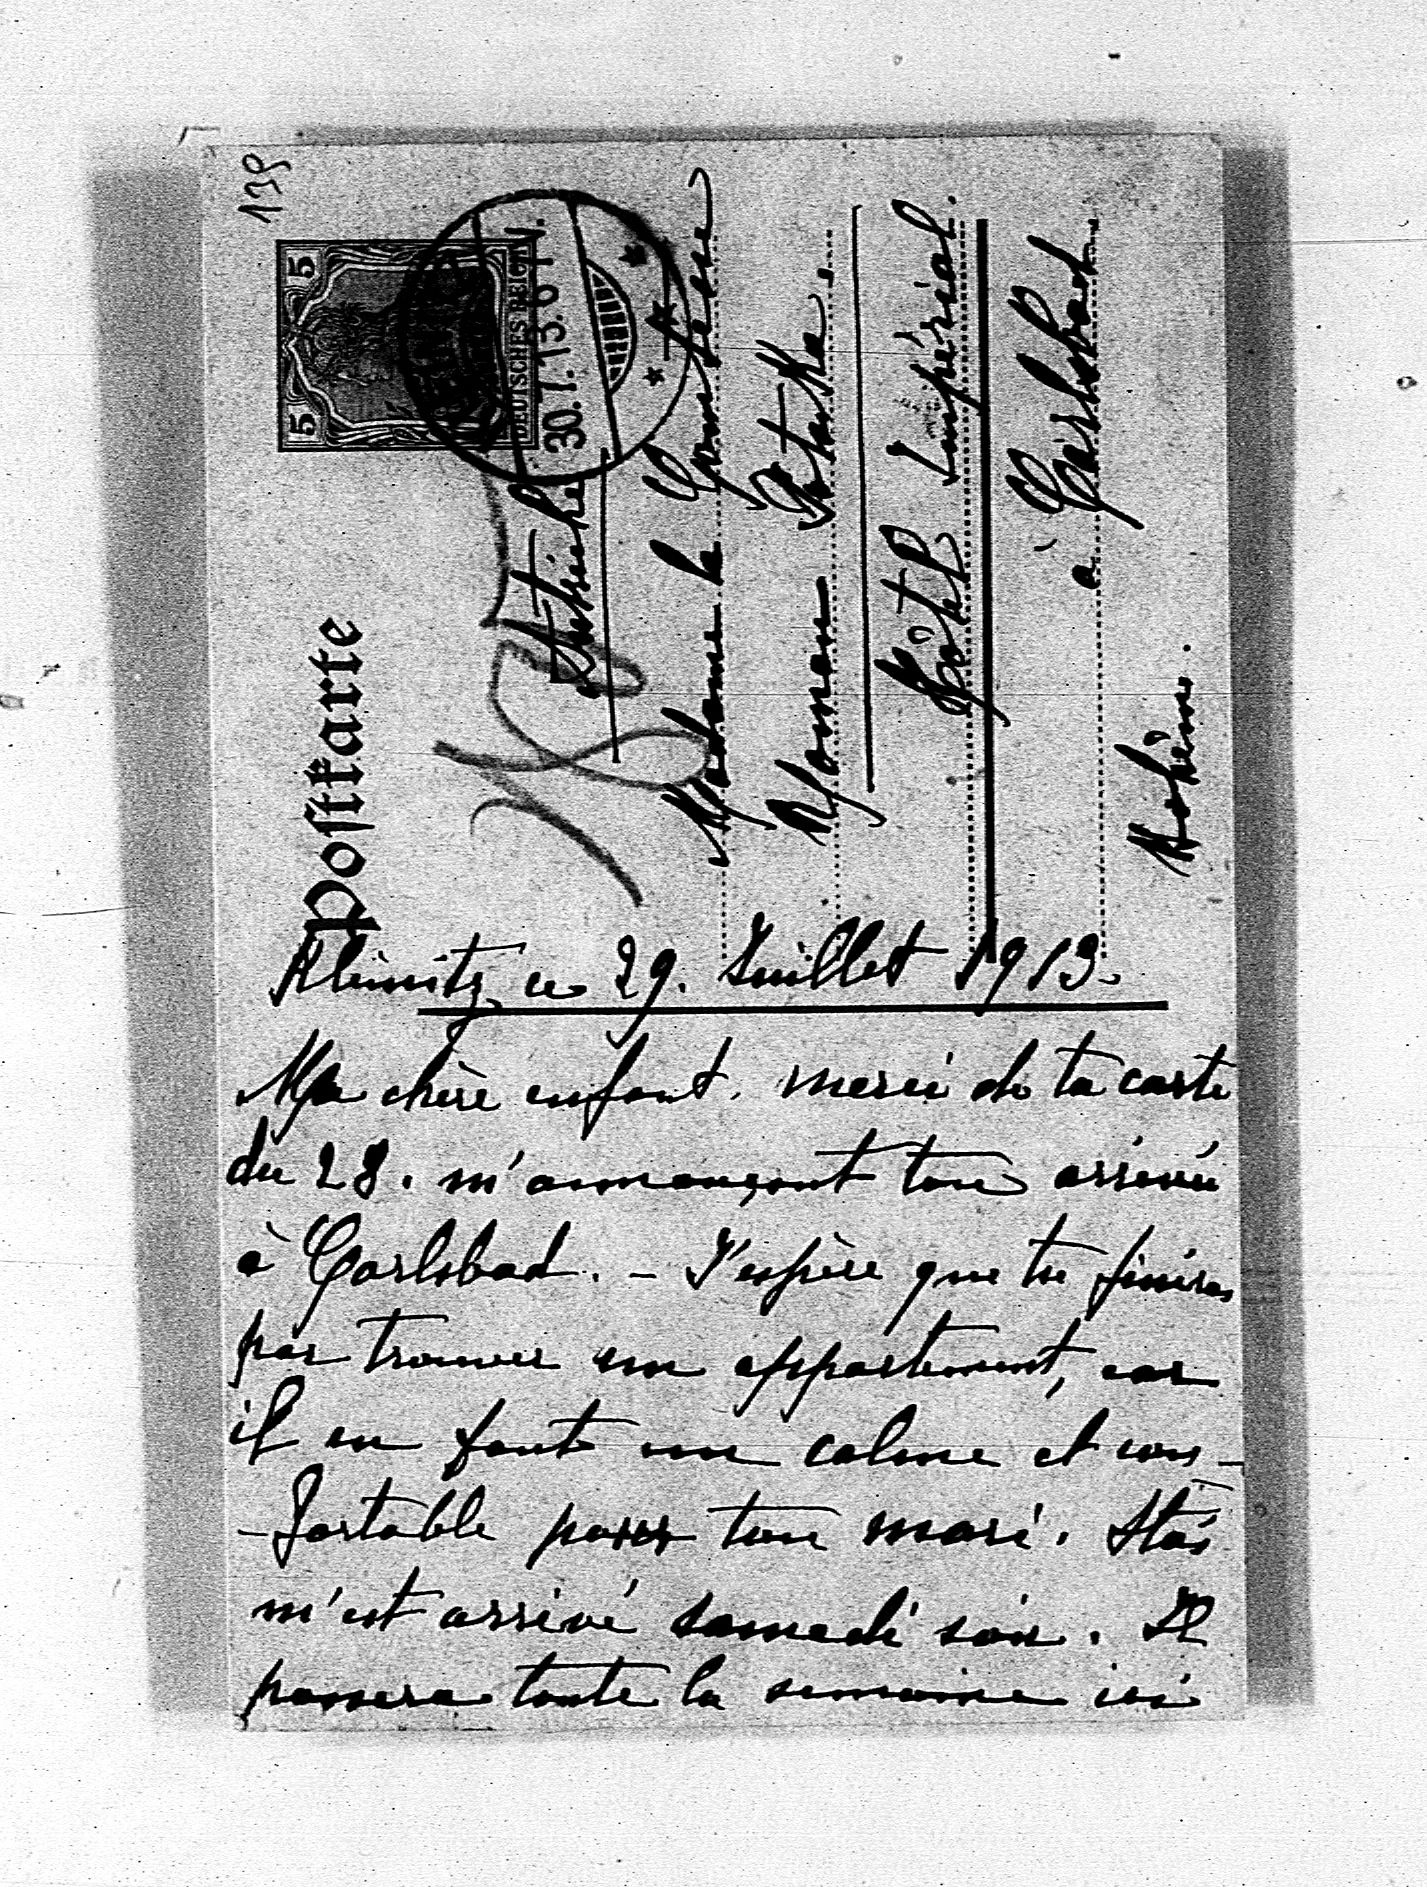 139
5 5
DEUTSCHES REICH
30.7.13. 6-7 V.
Postkarte
Autriche
Madame la Comtesse
Roman Potocka
Hôtel Impérial.
à Carlsbad
Bohème.
ce 29. Juillet 1913.
Ma chère enfant. merci de ta carte
du 28. m'annonçant ton arrivée
à Carlsbad. - J'espère que tu finiras
par trouver un appartement, car
il en faut un calme et con-
-fortable pour ton mari. Stas
m'est arrivé samedi soir. Il
passera toute la semaine ici